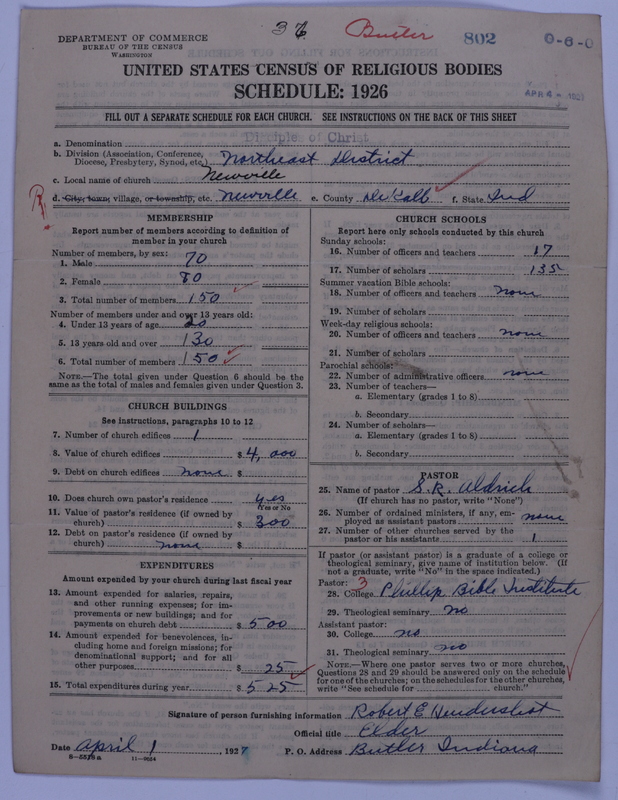 37 Butler 802 0-6-0
DEPARTMENT OF COMMERCE
BUREAU OF THE CENSUS
WASHINGTON
UNITED STATES CENSUS OF RELIGIOUS BODIES
SCHEDULE: 1926
APR 4 - 1927
FILL OUT A SEPARATE SCHEDULE FOR EACH CHURCH. SEE INSTRUCTIONS ON THE BACK OF THIS SHEET
a. Denomination Disciple of Christ
b. Division (Association, Conference, Diocese, Presbytery, Synod, etc.) Northeast District
c. Local name of church Newville
d. City, town, village, or township, etc. Newville e. County DeKalb f. State Ind
MEMBERSHIP
Report number of members according to definition of
member in your church
Number of members, by sex:
1. Male 70
2. Female 80
3. Total number of members 150
Number of members under and over 13 years old:
4. Under 13 years of age 20
5. 13 years old and over 130
6. Total number of members 150
NOTE.—The total given under Question 6 should be the
same as the total of males and females given under Question 3.
CHURCH BUILDINGS
See instructions, paragraphs 10 to 12
7. Number of church edifices 1
8. Value of church edifices $ 4,000
9. Debt on church edifices none $
10. Does church own pastor's residence yes
Yes or No
11. Value of pastor's residence (if owned by
church) $ 300
12. Debt on pastor's residence (if owned by
church) none $
EXPENDITURES
Amount expended by your church during last fiscal year
13. Amount expended for salaries, repairs,
and other running expenses; for im-
provements or new buildings; and for
payments on church debt $ 500
14. Amount expended for benevolences, in-
cluding home and foreign missions; for
denominational support; and for all
other purposes $ 25
15. Total expenditures during year $ 525
CHURCH SCHOOLS
Report here only schools conducted by this church
Sunday schools:
16. Number of officers and teachers 17
17. Number of scholars 135
Summer vacation Bible schools:
18. Number of officers and teachers none
19. Number of scholars
Week-day religious schools:
20. Number of officers and teachers none
21. Number of scholars
Parochial schools:
22. Number of administrative officers none
23. Number of teachers—
a. Elementary (grades 1 to 8)
b. Secondary
24. Number of scholars—
a. Elementary (grades 1 to 8)
b. Secondary
PASTOR
25. Name of pastor S. R. Aldrich
(If church has no pastor, write "None")
26. Number of ordained ministers, if any, em-
ployed as assistant pastors none
27. Number of other churches served by the
pastor or his assistants 1
If pastor (or assistant pastor) is a graduate of a college or
theological seminary, give name of institution below. (If
not a graduate, write "No" in the space indicated.)
Pastor: 3
28. College Phillip Bible Institute
29. Theological seminary no
Assistant pastor:
30. College no
31. Theological seminary no
NOTE.—Where one pastor serves two or more churches,
Questions 28 and 29 should be answered only on the schedule
for one of the churches; on the schedules for the other churches,
write "See schedule for church."
Signature of person furnishing information Robert E Hendershot
Official title Elder
Date April 1, 1927 P. O. Address Butler Indiana
8-5578a 11-9654